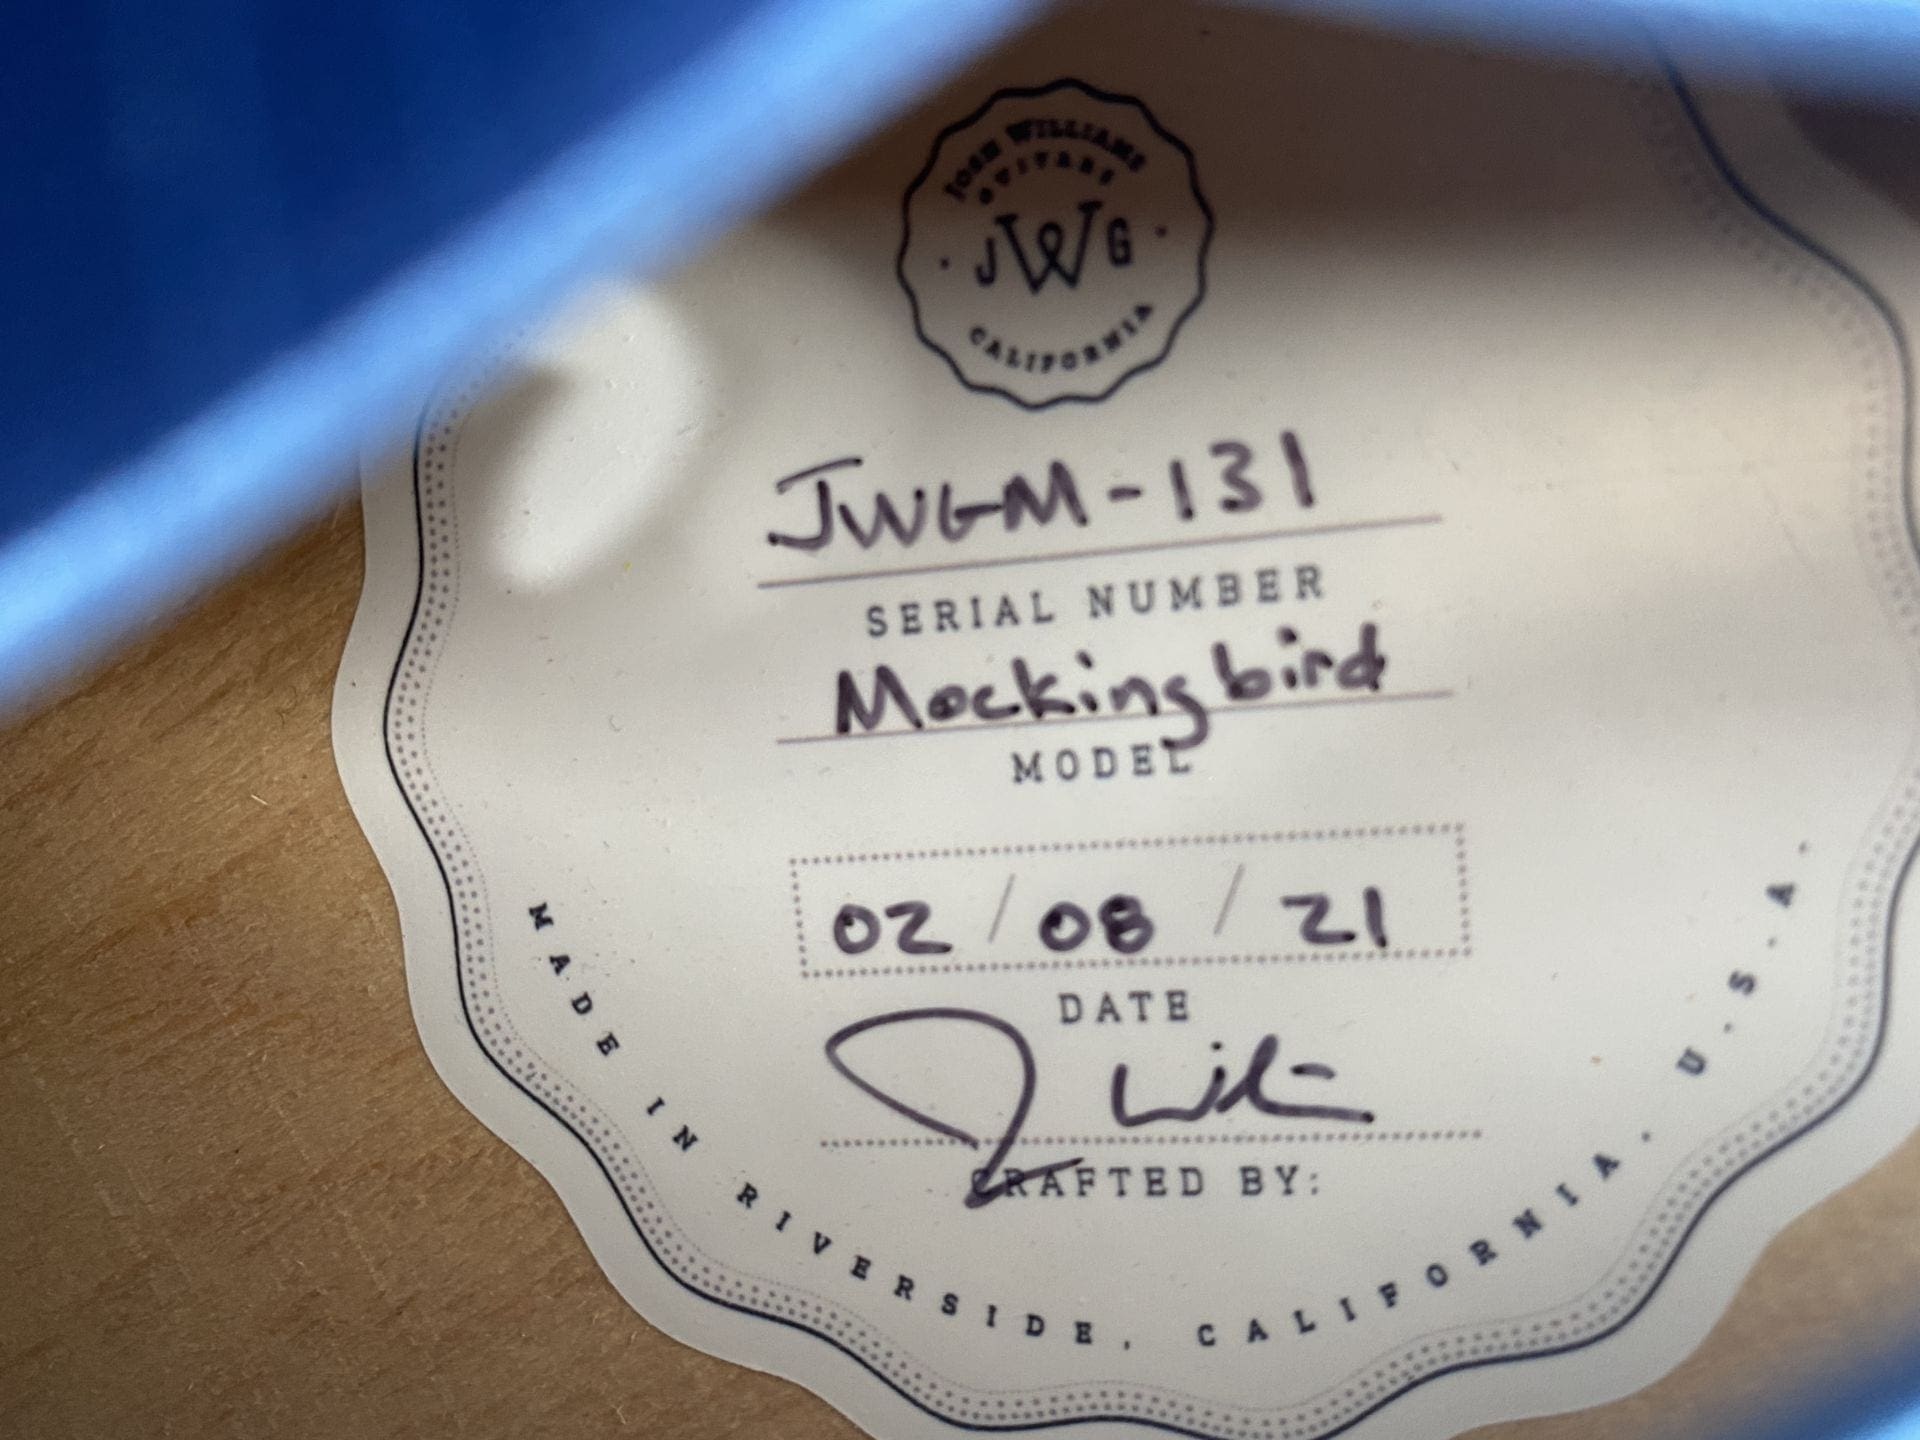 JOSH WILLIAMS
GUITARS
JWG
CALIFORNIA
JWGM-131
SERIAL NUMBER
Mockingbird
MODEL
02 / 08 / 21
DATE
J Wil
CRAFTED BY:
MADE IN RIVERSIDE, CALIFORNIA. U.S.A.